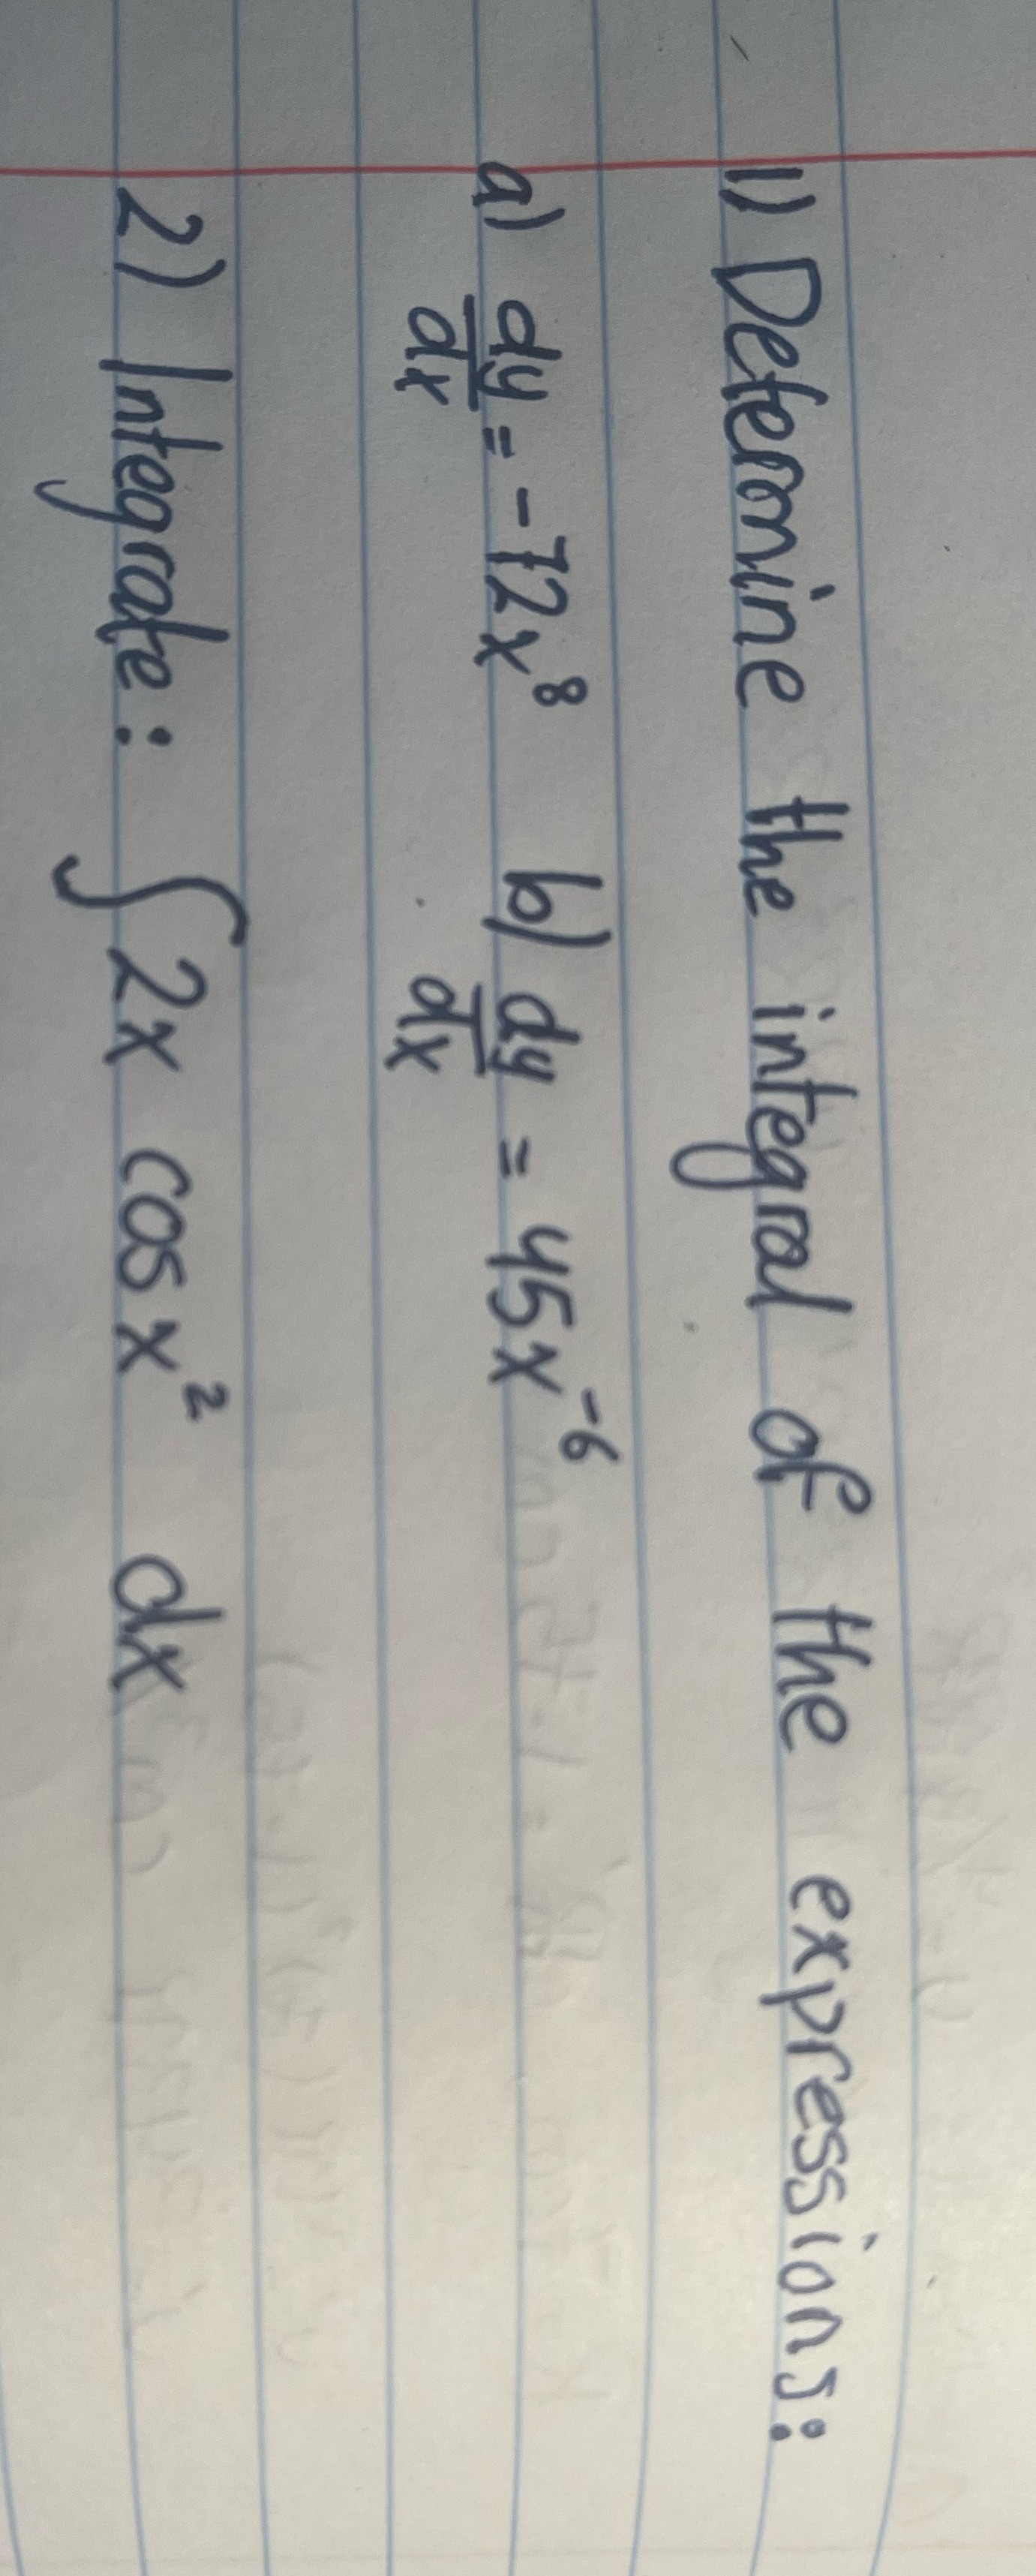 1) Determine the integral of the expressions:
a) dy/dx = -72x⁸ b) dy/dx = 45x⁻⁶
2) Integrate: ∫ 2x cos x² dx